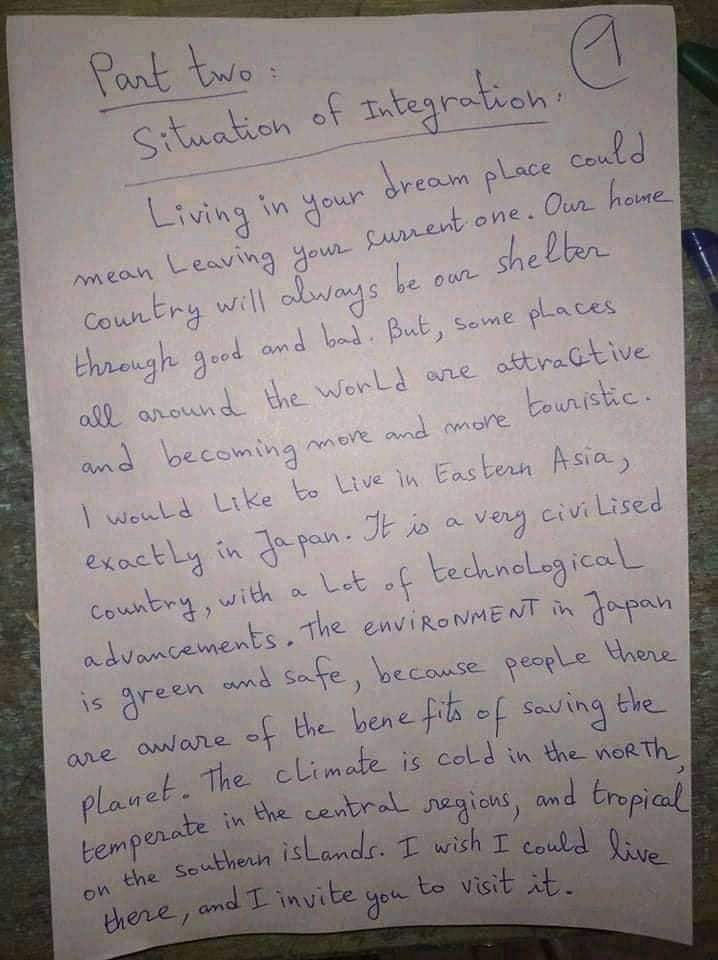 1
Part two :
Situation of Integration.
Living in your dream place could
mean Leaving your current one. Our home
country will always be our shelter
through good and bad. But, some places
all around the world are attractive
and becoming more and more touristic.
I would Like to Live in Eastern Asia,
exactly in Japan. It is a very civilised
country, with a Lot of technological
advancements. The enviRONMENT in Japan
is green and safe, because people there
are aware of the benefits of saving the
planet. The climate is cold in the noRTh,
temperate in the central regions, and tropical
on the southern islands. I wish I could live
there, and I invite you to visit it.